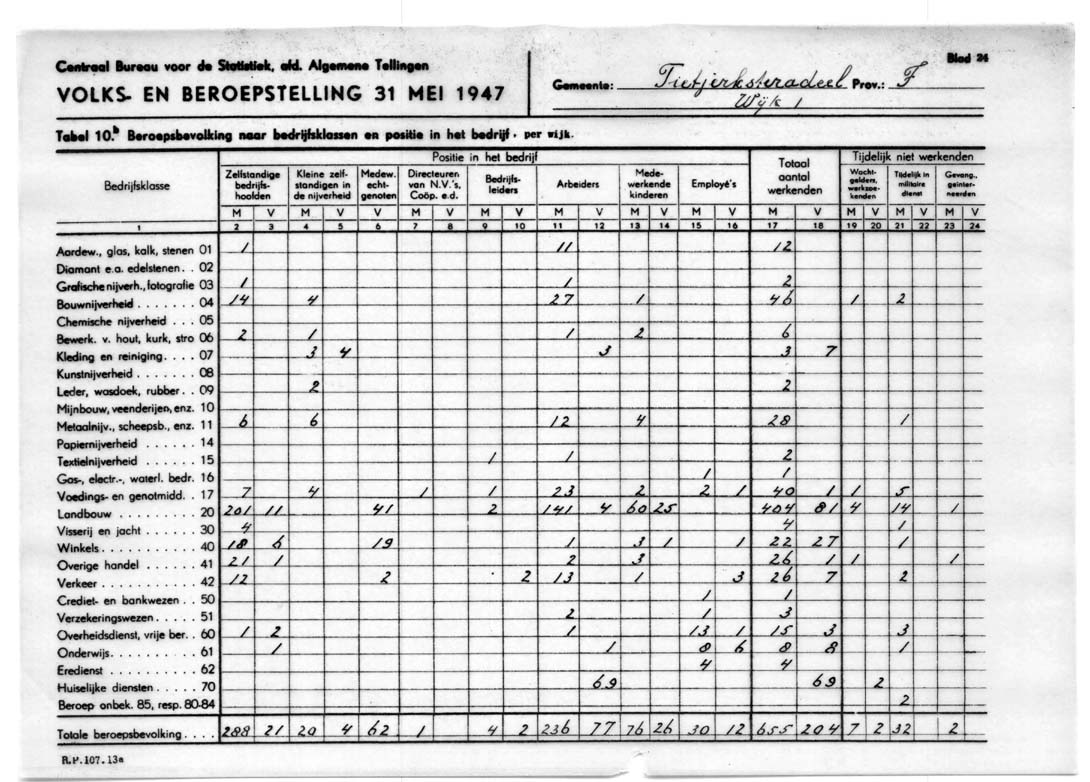 Centraal Bureau voor de Statistiek, afd. Algemene Tellingen
Blad 24
VOLKS- EN BEROEPSTELLING 31 MEI 1947
Gemeente: Tietjerksteradeel Prov.: F
Wijk 1
Tabel 10.b Beroepsbevolking naar bedrijfsklassen en positie in het bedrijf, per wijk.
Bedrijfsklasse
Positie in het bedrijf
Totaal aantal werkenden
Tijdelijk niet werkenden
Zelfstandige bedrijfs-hoofden
Kleine zelf-standigen in de nijverheid
Medew. echt-genoten
Directeuren van N.V.'s, Coöp. e.d.
Bedrijfs-leiders
Arbeiders
Mede-werkende kinderen
Employé's
Wacht-gelders, werkzoe-kenden
Tijdelijk in militaire dienst
Gevang., geïnter-neerden
M V M V V M V M V M V M V M V M V M V M V M V
1 2 3 4 5 6 7 8 9 10 11 12 13 14 15 16 17 18 19 20 21 22 23 24
Aardew., glas, kalk, stenen 01 1 11 12
Diamant e.a. edelstenen . . 02
Grafische nijverh., fotografie 03 1 1 2
Bouwnijverheid . . . . . . . 04 14 4 27 1 46 1 2
Chemische nijverheid . . . 05
Bewerk. v. hout, kurk, stro 06 2 1 1 2 6
Kleding en reiniging. . . . 07 3 4 3 3 7
Kunstnijverheid . . . . . . 08
Leder, wasdoek, rubber . . 09 2 2
Mijnbouw, veenderijen, enz. 10
Metaalnijv., scheepsb., enz. 11 6 6 12 4 28 1
Papiernijverheid . . . . . . 14
Textielnijverheid . . . . . . 15 1 1 2
Gas-, electr.-, waterl. bedr. 16 1 1
Voedings- en genotmidd. . 17 7 4 1 1 23 2 2 1 40 1 1 5
Landbouw . . . . . . . . . 20 201 11 41 2 141 4 60 25 404 81 4 14 1
Visserij en jacht . . . . . . 30 4 4 1
Winkels. . . . . . . . . . . 40 18 6 19 1 3 1 1 22 27 1
Overige handel . . . . . . 41 21 1 2 3 26 1 1 1
Verkeer . . . . . . . . . . 42 12 2 2 13 1 3 26 7 2
Crediet- en bankwezen . . 50 1 1
Verzekeringswezen. . . . . 51 2 1 3
Overheidsdienst, vrije ber. . 60 1 2 1 13 1 15 3 3
Onderwijs. . . . . . . . . . 61 1 1 8 6 8 8 1
Eredienst . . . . . . . . . 62 4 4
Huiselijke diensten . . . . . 70 69 69 2
Beroep onbek. 85, resp. 80-84 2
Totale beroepsbevolking . . . . 288 21 20 4 62 1 4 2 236 77 76 26 30 12 655 204 7 2 32 2
R.P.107.13a